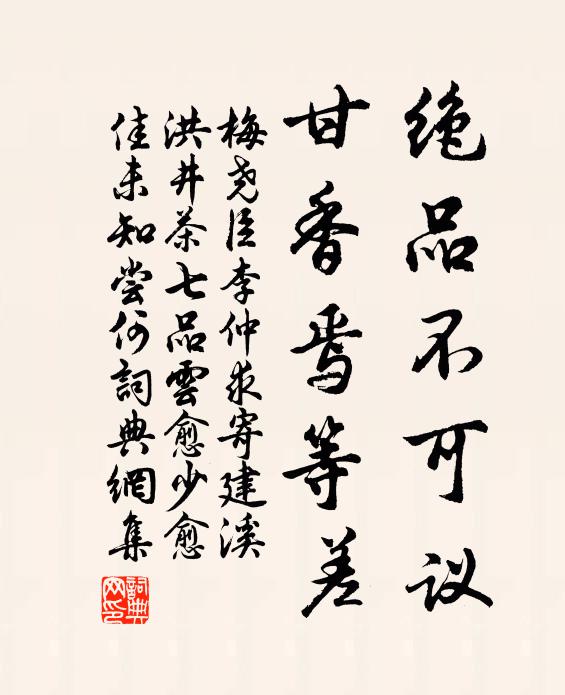 绝品不可议
甘香焉等差
梅尧臣李仲求寄建溪
洪井茶七品雲愈少愈
佳未知尝何詞典網集
詞典网印